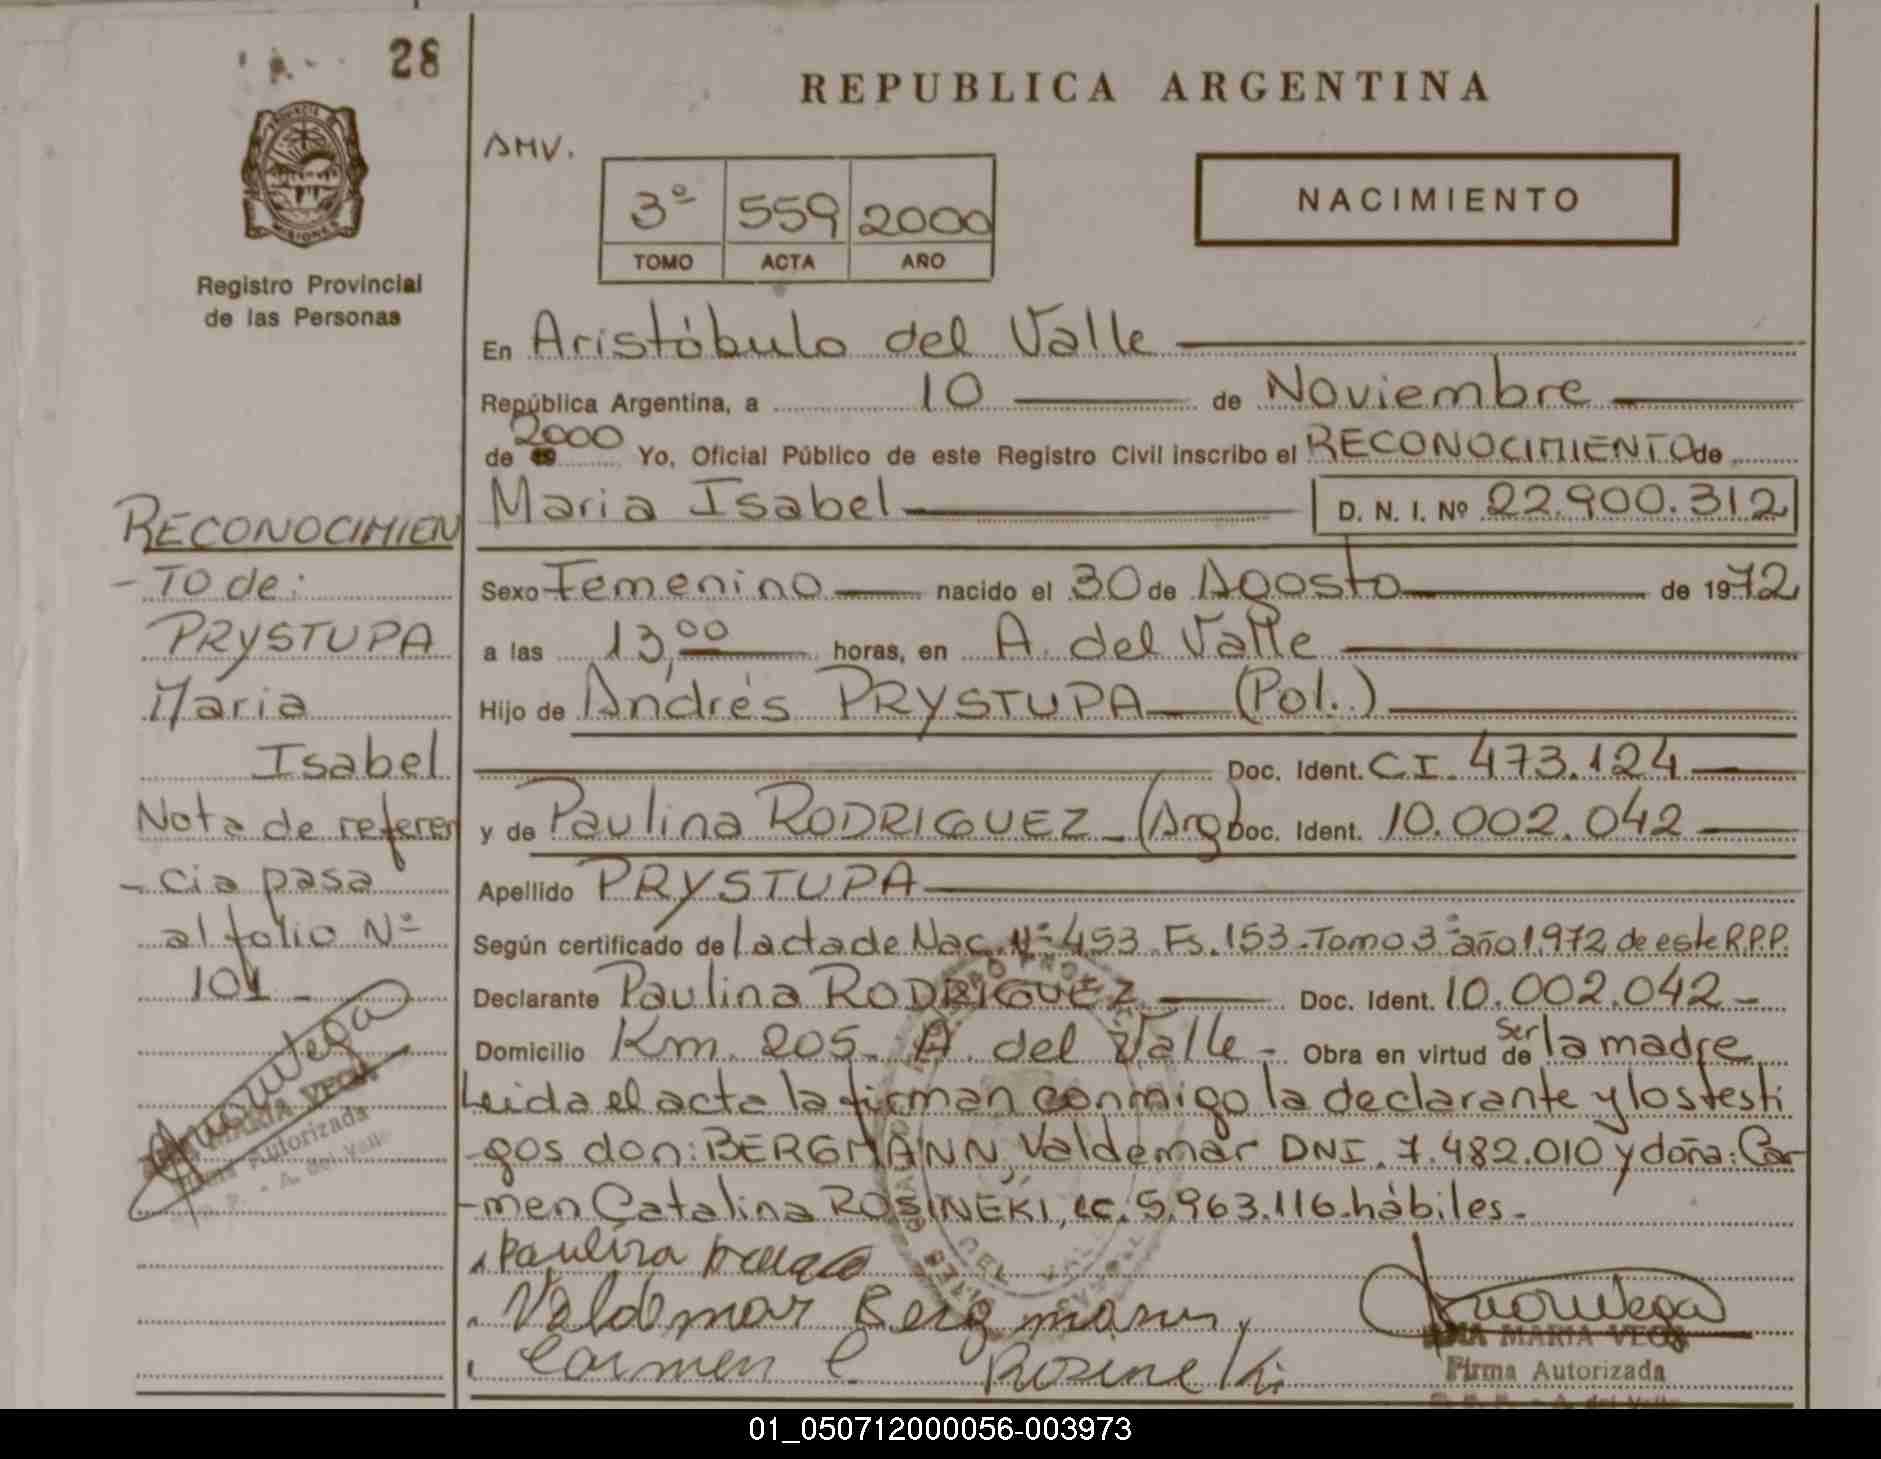 28
REPUBLICA ARGENTINA
AMV.
3º 559 2000
TOMO ACTA AÑO
NACIMIENTO
PROVINCIA DE
MISIONES
Registro Provincial
de las Personas
En Aristóbulo del Valle
República Argentina, a 10 de Noviembre
de 2000 Yo, Oficial Público de este Registro Civil inscribo el RECONOCIMIENTO de
Maria Isabel D. N. I. Nº 22.900.312
Sexo Femenino nacido el 30 de Agosto de 1972
a las 13,00 horas, en A. del Valle
Hijo de Andrés PRYSTUPA (Pol.)
Doc. Ident. CI. 473.124
y de Paulina RODRIGUEZ - (Arg) Doc. Ident. 10.002.042
Apellido PRYSTUPA
Según certificado de l acta de Nac. Nº 453. Fs. 153. Tomo 3º año 1.972 de este R.P.P.
Declarante Paulina RODRIGUEZ Doc. Ident. 10.002.042 -
Domicilio Km. 205. A. del Valle - Obra en virtud de Ser la madre
Leida el acta la firman conmigo la declarante y los testi
-gos don: BERGMANN, Valdemar DNI. 7.482.010 y doña: Car-
-men Catalina ROSINEKI, LC. 5.963.116. hábiles -
Paulina
Valdemar Bergmann
Carmen C. Rosineki
ANA MARIA VEGA
Firma Autorizada
A. del Valle
RECONOCIMIEN
- TO de:
PRYSTUPA
Maria
Isabel
Nota de referen
- cia pasa
al folio Nº
101 -
MARIA VEGA
Firma Autorizada
A. del Valle
01_050712000056-003973